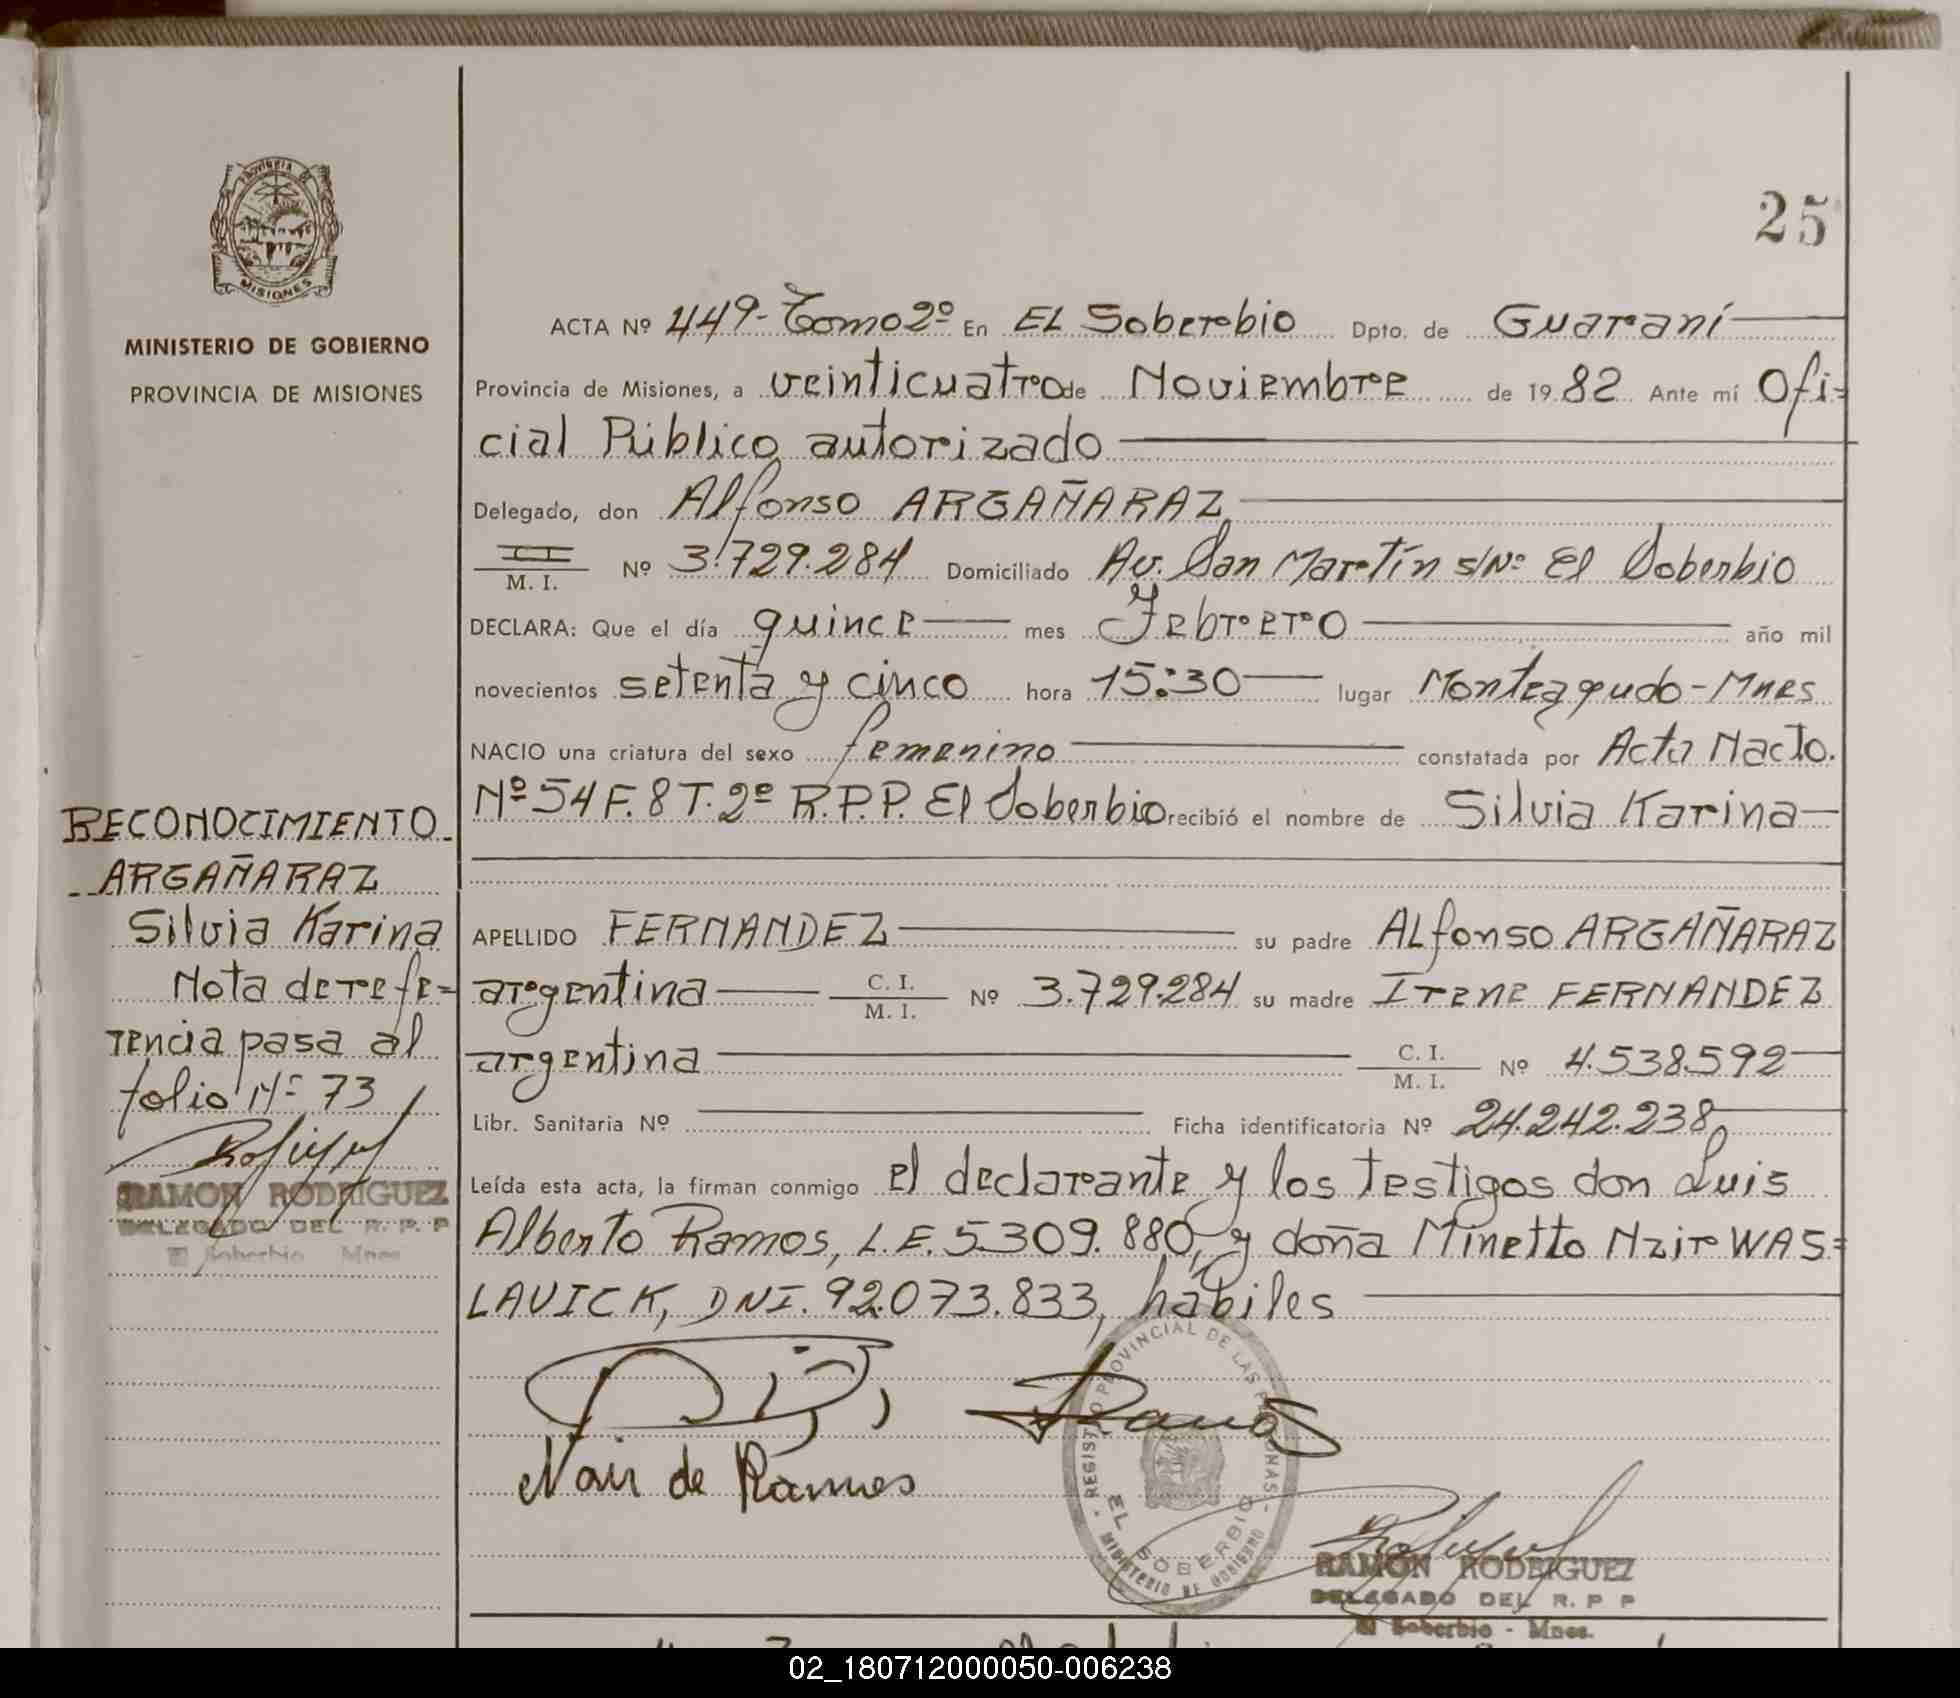 PROVINCIA DE
MISIONES
MINISTERIO DE GOBIERNO
PROVINCIA DE MISIONES
25
ACTA Nº 449-Tomo 2º En EL Soberbio Dpto. de Guaraní
Provincia de Misiones, a veinticuatro de Noviembre de 1982 Ante mí Ofi=
cial Público autorizado
Delegado, don Alfonso ARGAÑARAZ
M. I. Nº 3.729.284 Domiciliado Av. San Martín s/Nº El Soberbio
DECLARA: Que el día quince mes Febrero año mil
novecientos setenta y cinco hora 15:30 lugar Monteagudo-Mnes
NACIO una criatura del sexo femenino constatada por Acta Nacto.
Nº 54 F. 8 T. 2º R.P.P. El Soberbio recibió el nombre de Silvia Karina
APELLIDO FERNANDEZ su padre ALfonso ARGAÑARAZ
argentina C. I. M. I. Nº 3.729.284 su madre Irene FERNANDEZ
argentina C. I. M. I. Nº 4.538.592
Libr. Sanitaria Nº Ficha identificatoria Nº 24.242.238
Leída esta acta, la firman conmigo el declarante y los testigos don Luis
Alberto Ramos, L.E. 5.309.880, y doña Minetto Nair WAS=
LAVICK, DNI. 92.073.833, hábiles
RECONOCIMIENTO
ARGAÑARAZ
Silvia Karina
Nota de refe=
rencia pasa al
folio Nº 73
RAMON RODRIGUEZ
DELEGADO DEL R. P. P
El Soberbio Mnes
Ramos
Nair de Ramos
REGISTRO PROVINCIAL DE LAS PERSONAS
EL SOBERBIO
MINISTERIO DE GOBIERNO
RAMON RODRIGUEZ
DELEGADO DEL R. P P
El Soberbio - Mnes.
02_180712000050-006238